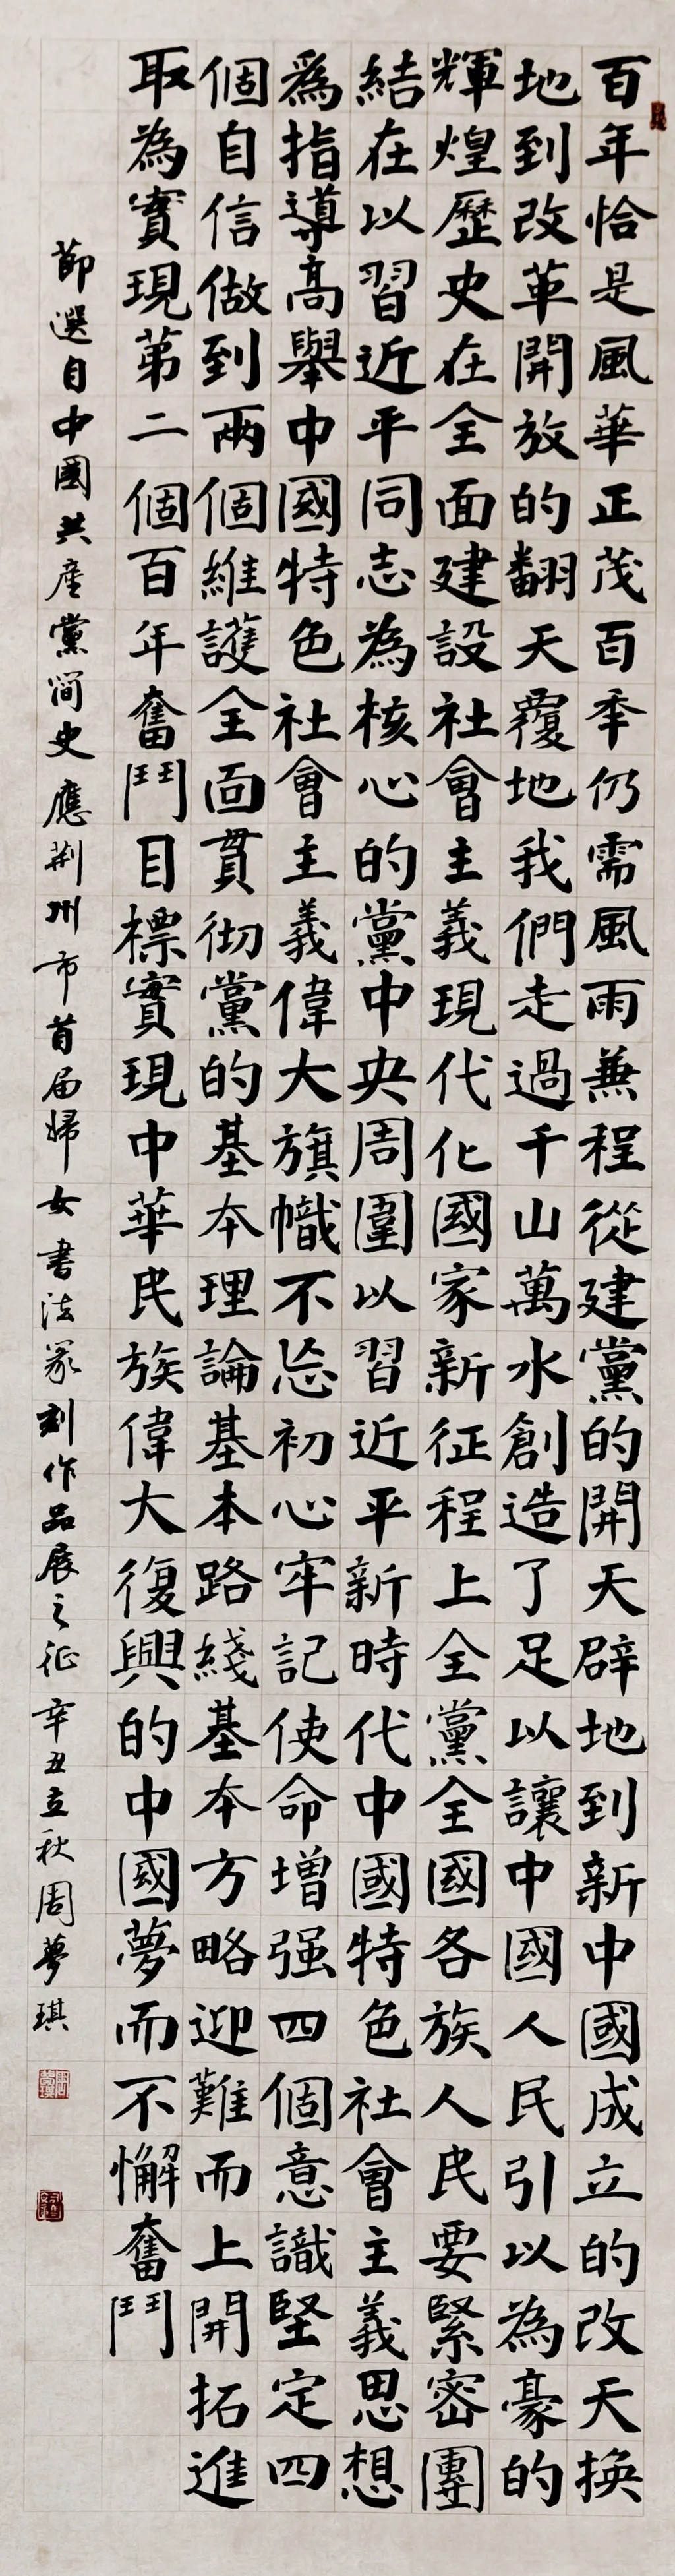 百年恰是風華正茂百年仍需風雨兼程從建黨的開天辟地到新中國成立的改天換
地到改革開放的翻天覆地我們走過千山萬水創造了足以讓中國人民引以為豪的
輝煌歷史在全面建設社會主義現代化國家新征程上全黨全國各族人民要緊密團
結在以習近平同志為核心的黨中央周圍以習近平新時代中國特色社會主義思想
爲指導高舉中國特色社會主義偉大旗幟不忘初心牢記使命增强四個意識堅定四
個自信做到兩個維護全面貫彻黨的基本理論基本路綫基本方略迎難而上開拓進
取為實現第二個百年奮鬥目標實現中華民族偉大復興的中國夢而不懈奮鬥
節選自中國共產黨简史應荆州市首届婦女書法篆刻作品展之征辛丑立秋周夢琪